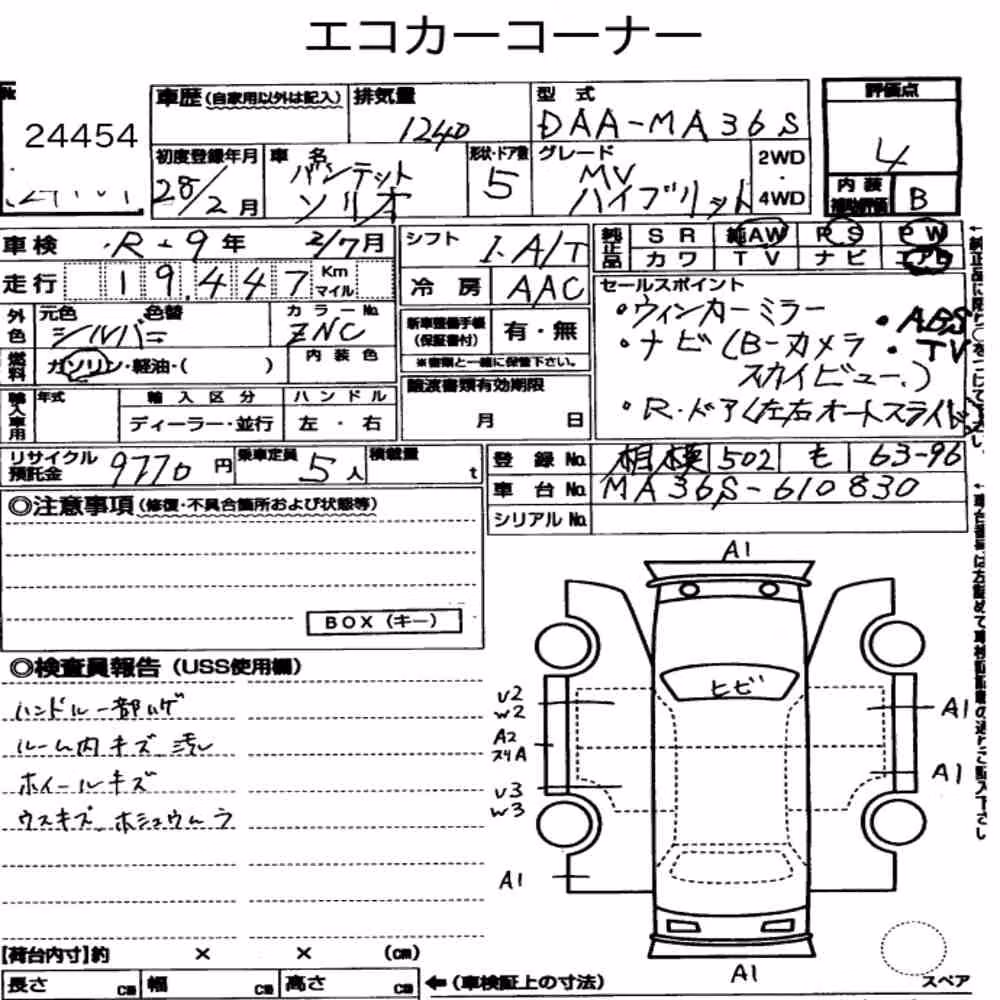 エコカーコーナー
24454
車歴 (自家用以外は記入)
排気量 1240
型式 DAA-MA36S
評価点 4
内装補助評価 B
初度登録年月 28/2月
車名 バンデット ソリオ
形状・ドア数 5
グレード MV ハイブリット
2WD・4WD
車検 R-9年 2/7月
走行 19.447 Km マイル
シフト I.A/T
冷房 AAC
純正品 SR 純AW PS PW
カワ TV ナビ エアB
外色 元色 シルバー 色替
カラーNo. ZNC
燃料 ガソリン・軽油・( )
内装色
新車整備手帳(保証書付) 有・無
※書類と一緒に保管下さい。
セールスポイント
・ウィンカーミラー ・ABS
・ナビ(B-カメラ ・TV
スカイビュー.)
・R・ドア(左右オートスライド)
輸入車用 年式 輸入区分 ハンドル
ディーラー・並行 左・右
譲渡書類有効期限
月 日
リサイクル預託金 9770円
乗車定員 5人
積載量 t
登録No. 相模 502 も 63-96
車台No. MA36S-610830
シリアルNo.
◎注意事項(修復・不具合箇所および状態等)
BOX(キー)
◎検査員報告(USS使用欄)
ハンドル一部ハゲ
ルーム内キズ 汚レ
ホイールキズ
ウスキズ ホシュウムラ
A1
ヒビ
U2
W2
A2
スリA
U3
W3
A1
A1
A1
A1
スペア
【荷台内寸】約 × × (cm)
長さ cm 幅 cm 高さ cm
←(車検証上の寸法)